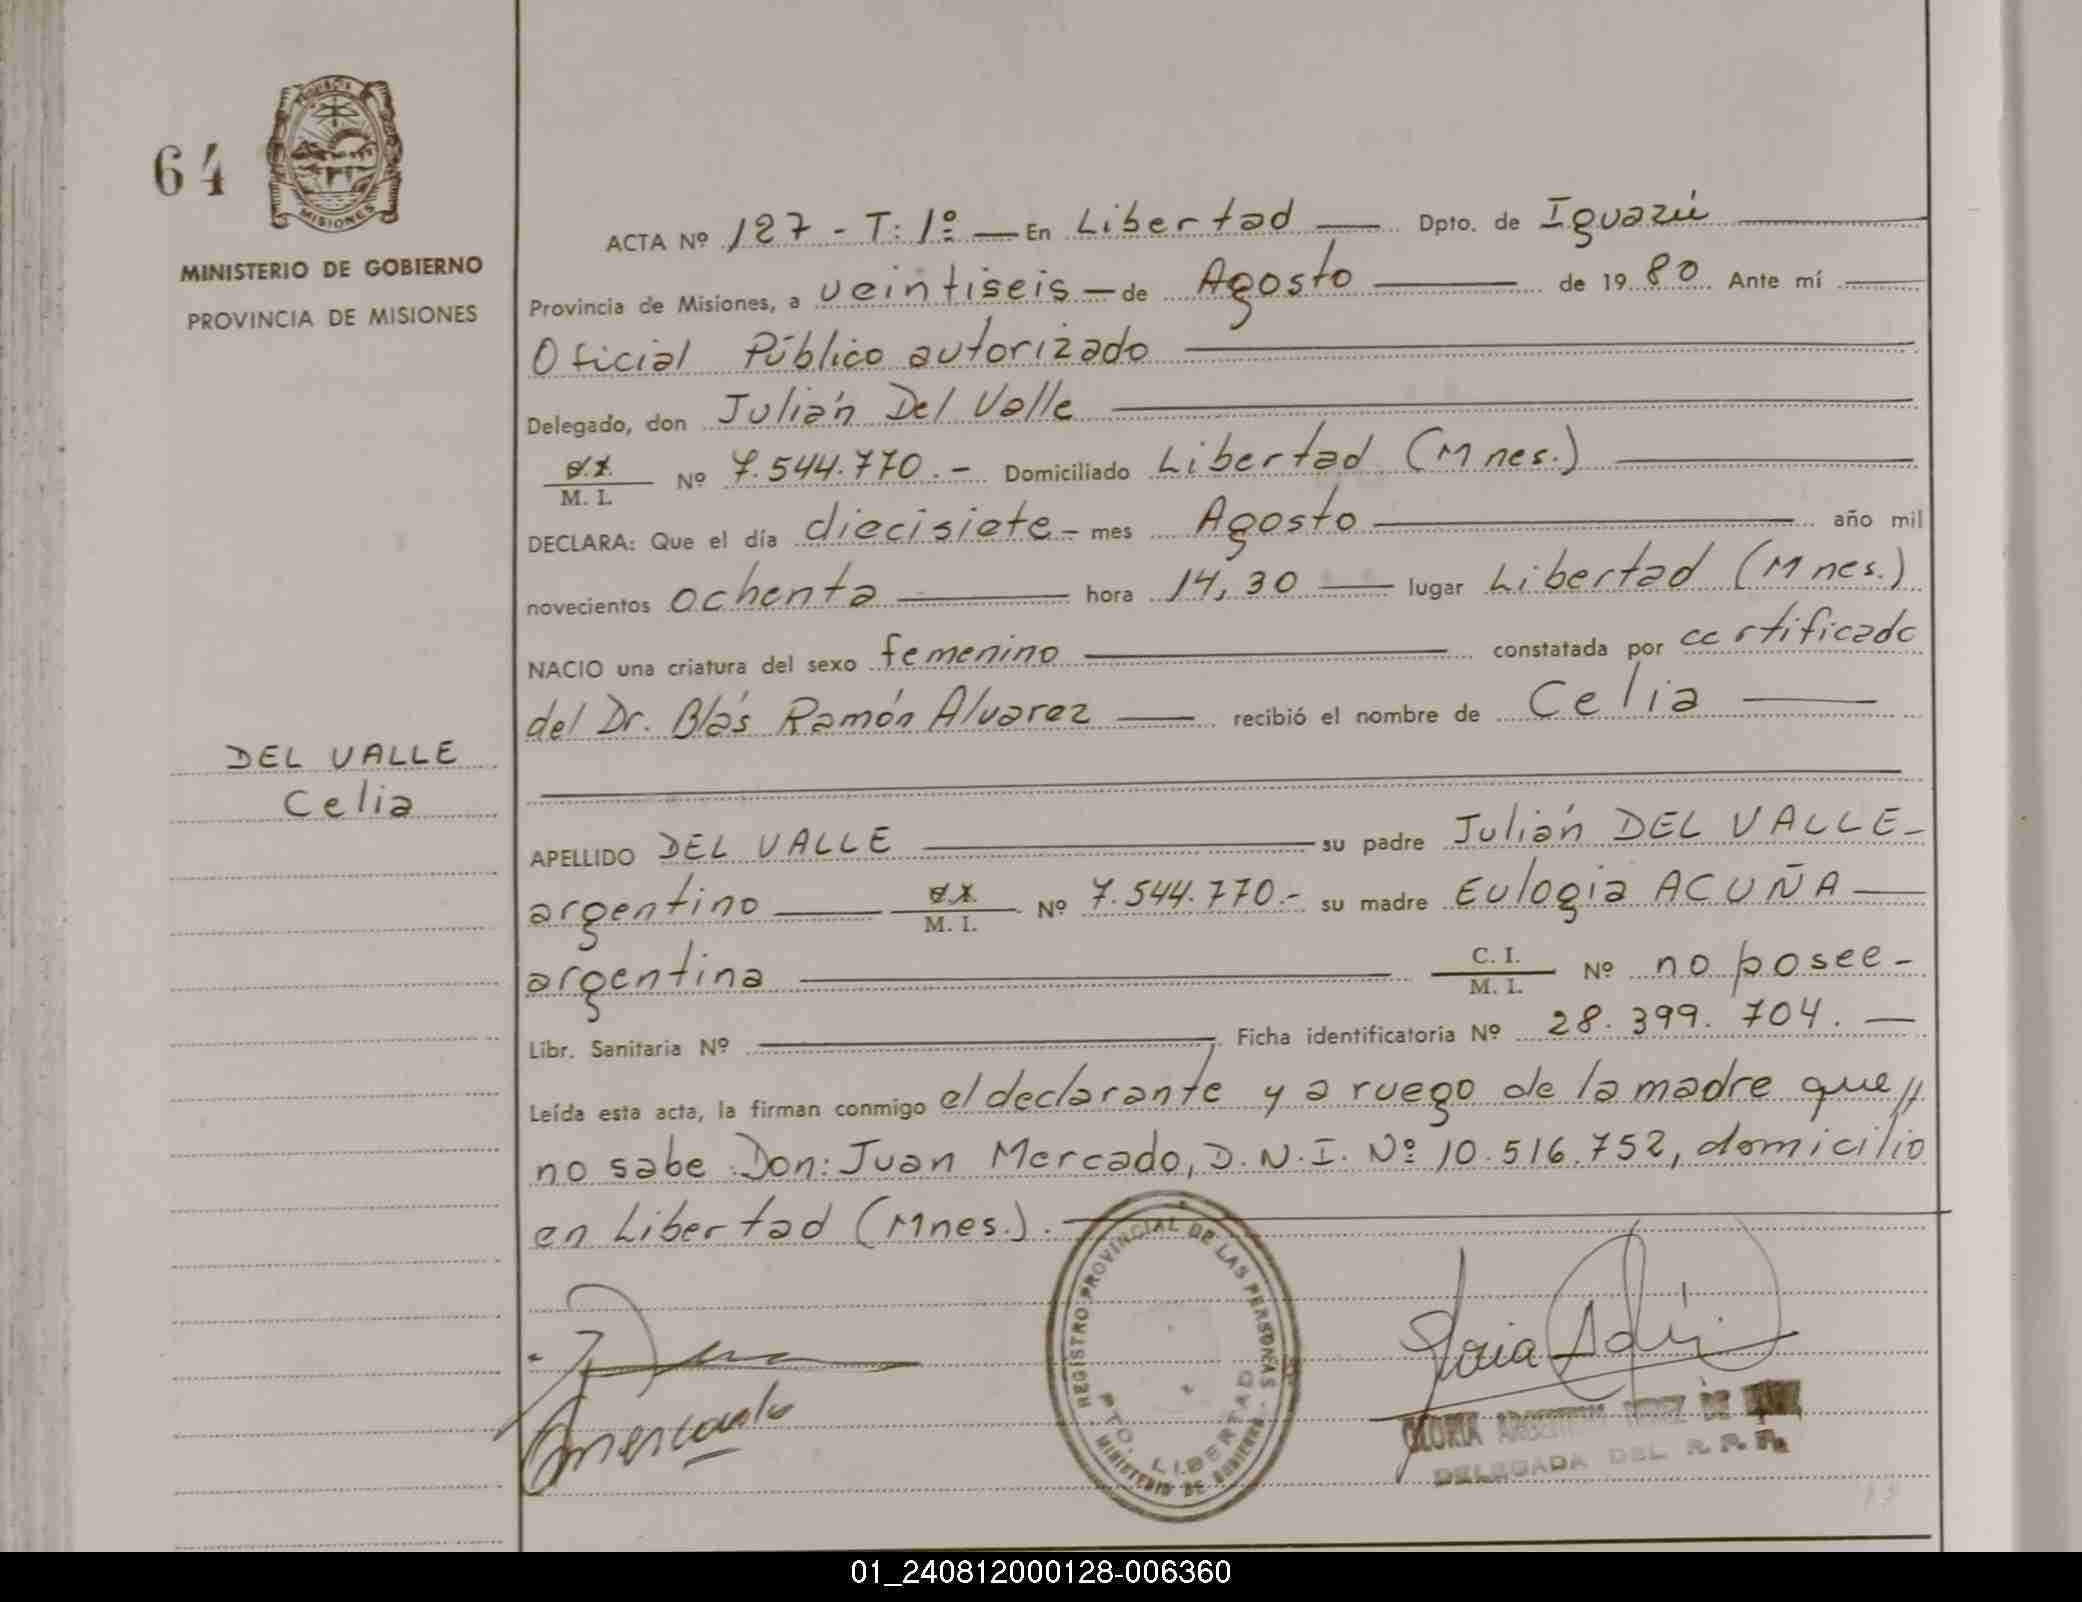 64
PROVINCIA
MISIONES
MINISTERIO DE GOBIERNO
PROVINCIA DE MISIONES
DEL VALLE
Celia
ACTA Nº 127 - T: 1º — En Libertad — Dpto. de Iguazú
Provincia de Misiones, a veintiseis — de Agosto — de 1980 Ante mí —
Oficial Público autorizado
Delegado, don Julián Del Valle
M. I. Nº 7.544.770.- Domiciliado Libertad (Mnes.)
DECLARA: Que el día diecisiete - mes Agosto — año mil
novecientos ochenta — hora 14,30 — lugar Libertad (Mnes.)
NACIO una criatura del sexo femenino — constatada por certificado
del Dr. Blás Ramón Alvarez — recibió el nombre de Celia —
APELLIDO DEL VALLE — su padre Julián DEL VALLE-
argentino — M. I. Nº 7.544.770.- su madre Eulogia ACUÑA —
argentina — C. I. M. I. Nº no posee -
Libr. Sanitaria Nº — Ficha identificatoria Nº 28.399.704. —
Leída esta acta, la firman conmigo el declarante y a ruego de la madre que //
no sabe Don: Juan Mercado, D.N.I. Nº 10.516.752, domicilio
en Libertad (Mnes.). —
REGISTRO PROVINCIAL DE LAS PERSONAS
PTO. LIBERTAD
- MINISTERIO DE GOBIERNO -
Mercado
Gloria
GLORIA
DELEGADA DEL R. P. P.
01_240812000128-006360